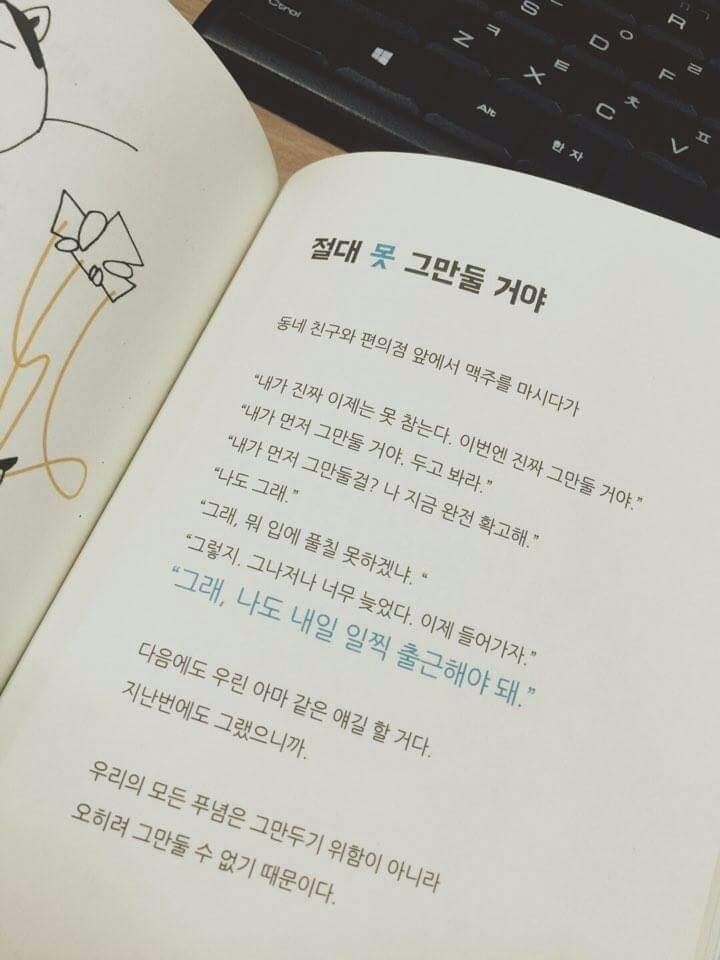 Ctrl
S
D
R
ㄱ
Z ㅋ
X ㅌ
C ㅊ
V ㅍ
F ㄹ
Alt
한자
절대 못 그만둘 거야
동네 친구와 편의점 앞에서 맥주를 마시다가
“내가 진짜 이제는 못 참는다. 이번엔 진짜 그만둘 거야.”
“내가 먼저 그만둘 거야. 두고 봐라.”
“내가 먼저 그만둘걸? 나 지금 완전 확고해.”
“나도 그래.”
“그래, 뭐 입에 풀칠 못하겠냐. “
“그렇지. 그나저나 너무 늦었다. 이제 들어가자.”
“그래, 나도 내일 일찍 출근해야 돼.”
다음에도 우린 아마 같은 얘길 할 거다.
지난번에도 그랬으니까.
우리의 모든 푸념은 그만두기 위함이 아니라
오히려 그만둘 수 없기 때문이다.